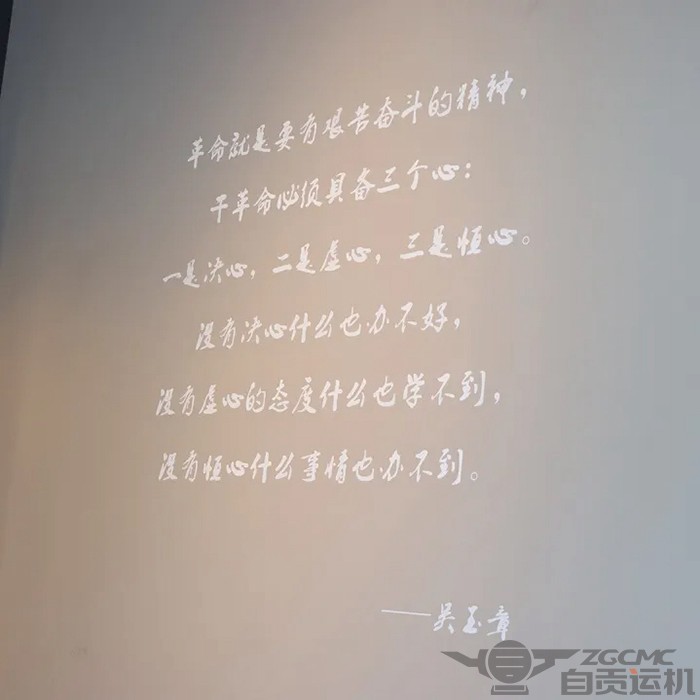 革命就是要有艰苦奋斗的精神，
干革命必须具备三个心：
一是决心，二是虚心，三是恒心。
没有决心什么也办不好，
没有虚心的态度什么也学不到，
没有恒心什么事情也办不到。
——吴玉章
ZGCMC
自贡运机